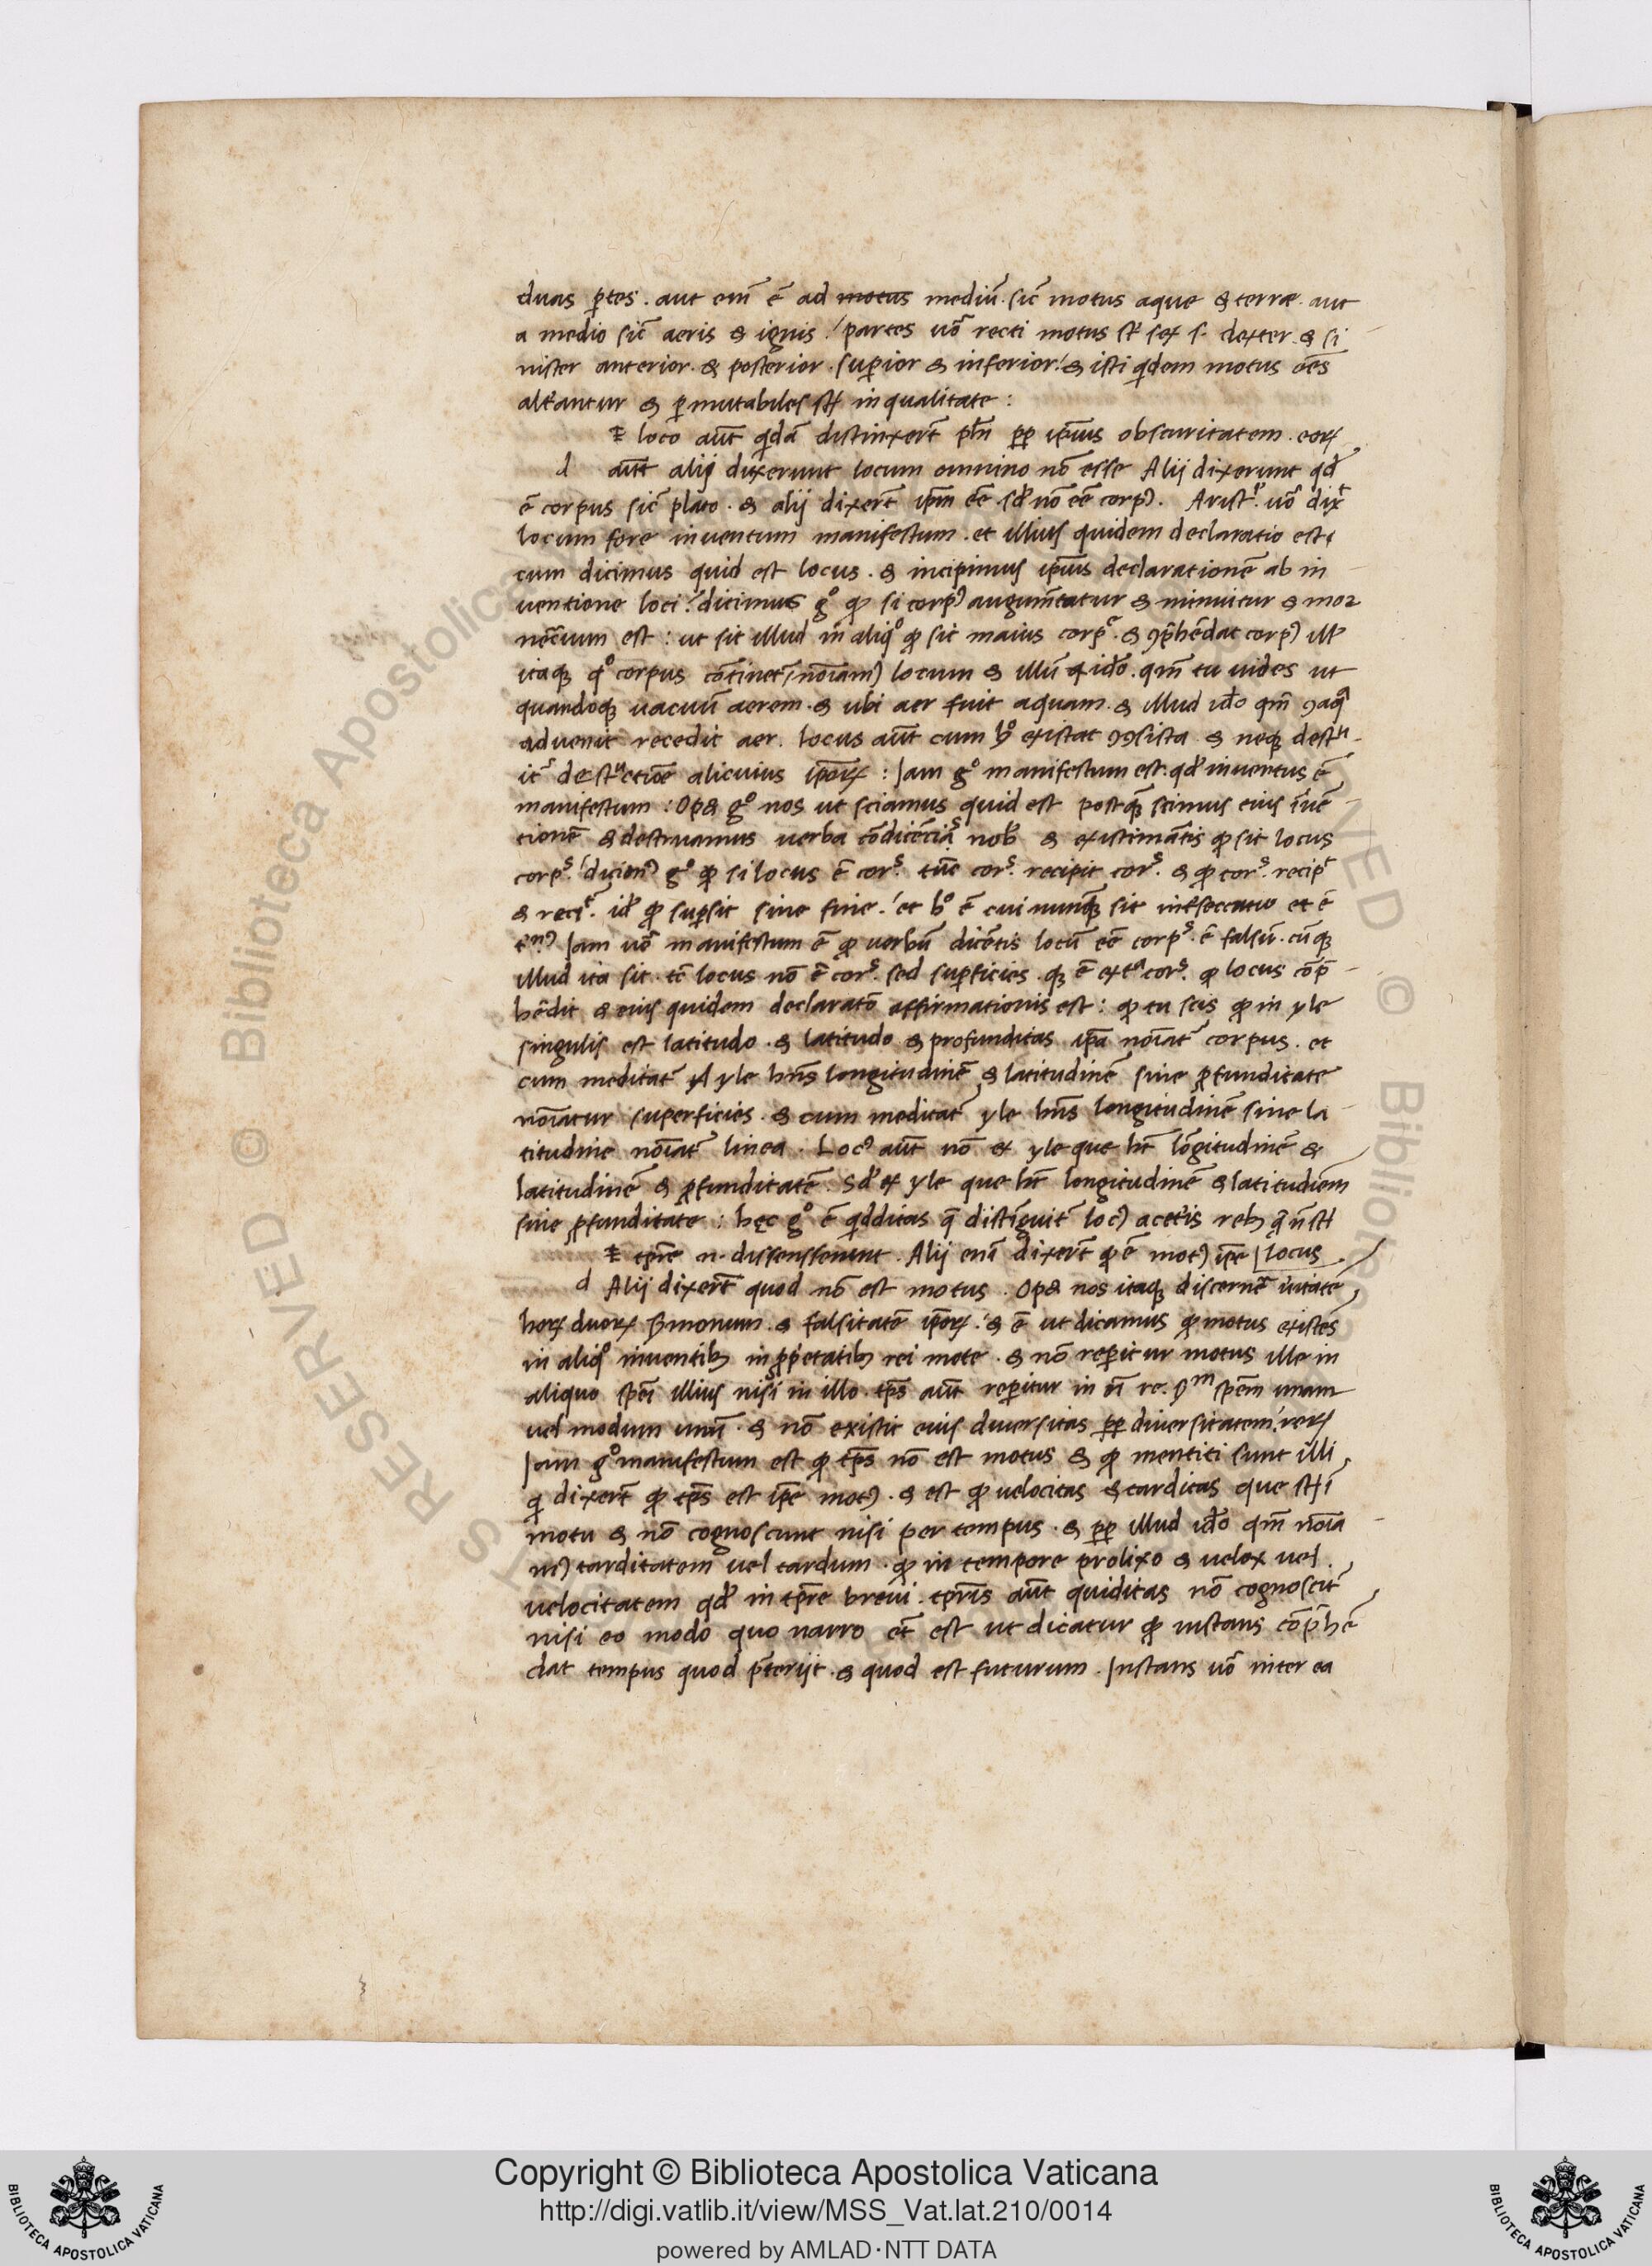 duas ꝑtes . aut em̄ ē ad motus mediū . sic̄ motus aque & terræ . aut
a medio sic̄ aeris & ignis / partes uō recti motus st̄ sex s. dexter . & si
nister anterior . & posterior . superior & inferior / & isti qdem motus oēs
alt̄antur & ꝑmutabiles st̄ in qualitate :
loco aūt qdā distinxerūt ph̄i ꝓp ip̄ius obscuritatem . eoꝝ
d aūt alij dixerunt locum omnino nō esse Alij dixerunt qd̄
ē corpus sic̄ plato . & alij dixerūt ip̄m eē . sd̄ nō eē corpꝰ . Arist. uō dixͭ
locum fore inventum manifestum . et illius quidem declaratio est
cum dicimus quid est locus . & incipimus ip̄ius declarationē ab in
ventione loci / dicimus gͦ ꝙ si corpꝰ augum̄tatur & minuitur & moꝛ
nec̄ium est : ut sit illud in aliqͦ ꝙ sit maius corpꝰ . & ꝯprehēdat corpꝰ ill̄
itaqꝫ qͦ corpus cōtinetᷣ / nōiamꝰ locum & illū . qm̄ tu uides ut
quandoqꝫ vacuū aerem . & ubi aer fuit aquam . & illud id̄o qm̄
advenit recedit aer . locus aūt cum hͦ existat & neqꝫ destru
itᷣ destructiōe alicuius ip̄oꝝ : Iam gͦ manifestum est . qd̄ inventus ē
manifestum : Op& gͦ nos ut sciamus quid est postqꝫ scimus eius īvē
tionē & destruamus verba cōdicēciā nob̄ & existimātis ꝙ sit locus
corpꝰ / dicimꝰ gͦ ꝙ si locus ē corꝰ . tūc corꝰ . recipit corꝰ . & ꝙ corꝰ . recipͭ
& recͭ . id̄ ꝙ supersit sine fine / et hͦ ē cui nunqꝫ sit et ē
Iam uō manifestum ē ꝙ verbū dicētis locū eē corpꝰ . ē falsū . cūqꝫ
illud ita sit . tc̄ locus nō ē corꝰ . sed superficies . qꝫ ē extͣ corꝰ . ꝙ locus cōp̄
hēdit & eius quidem declaratō affirmationis est : ꝙ tu scis ꝙ in yle
singulis est latitudo . & latitudo & profunditas ip̄a nōiatᷣ corpus . et
cum meditatᷣ yl yle hn̄s longitudinē & latitudinē sine ꝓfunditate
nōiatur superficies . & cum meditatᷣ yle hn̄s longitudinē sine la
titudine nōiatᷣ linea . Locꝰ aūt nō ex yle que ht̄ lōgitudinē &
latitudinē & ꝓfunditatē . Sd̄ ex yle que ht̄ longitudinē & latitudiem
sine ꝓfunditate : hęc gͦ ē qdditas q̄ distīguitᷣ locꝰ a cet̄is rebꝫ
tp̄re n. dissensserunt . Alij enī dixerūt ꝙ ē motꝰ ip̄e | locus
d Alij dixerūt quod nō est motus . Op& nos itaqꝫ discernē ūitatē
hoꝝ duoꝝ s̄monum . & falsitatē ip̄oꝝ : & ē ut dicamus ꝙ motus existēs
in aliqͦ inventibꝫ in ꝓprietatibꝫ rei mote . & nō reperitur motus ille in
aliquo sp̄ei illius nisi in illo . tp̄s aūt reperitur in oī re . sp̄em unam
uel modum unū . & nō existit eius diversitas ꝓp diversitatem / reꝝ
Iam gͦ manifestum est ꝙ tp̄s nō est motus & ꝙ mentiti sunt illi
q dixerūt ꝙ tp̄s est ip̄e motꝰ . & est ꝙ velocitas & tarditas que st̄ ī
motu & nō cognoscunt nisi per tempus . & ꝓp illud id̄o qm̄ nōia
mꝰ tarditatem vel tardum . ꝙ in tempore prolixo & velox vel
velocitatem qd̄ in tp̄re brevi . tp̄ris aūt quiditas nō cognoscitᷣ
nisi eo modo quo narro et̄ est ut dicatur ꝙ instans cōprehē
dat tempus quod p̄terijt . & quod est futurum . Instans uō inter ea
Copyright © Biblioteca Apostolica Vaticana
http://digi.vatlib.it/view/MSS_Vat.lat.210/0014
powered by AMLAD·NTT DATA